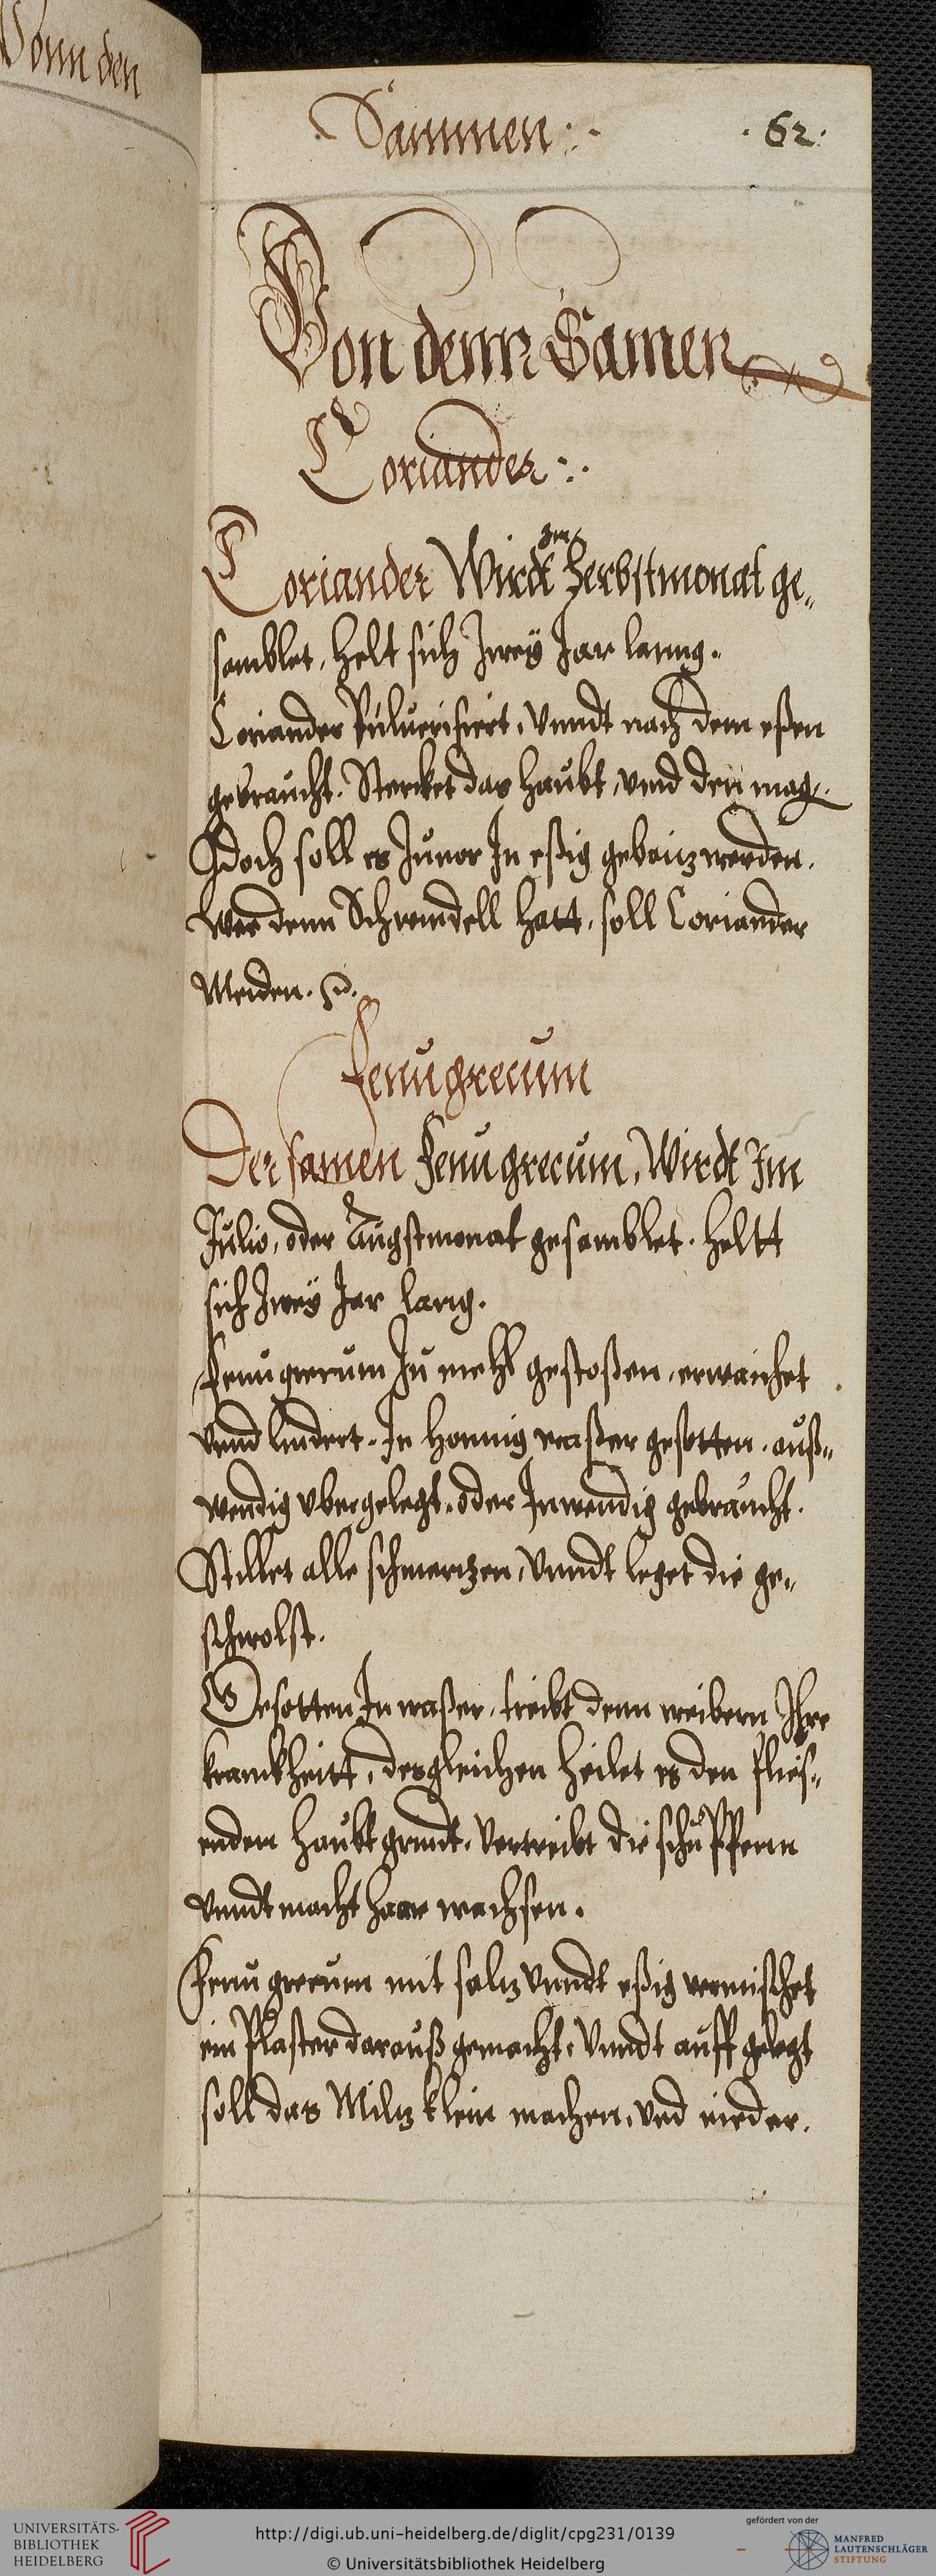 Vonn den
Sammen :.
. 62 .
Von denn Samen
Coriander :.
im
Coriander Wirdt herbstmonat ge„
samblet, helt sich Zwey Jar lanng.
Coriander Puluerisiert, vnndt nach dem eßen
gebraucht. Sterckt das haubt, vnd den mag.
Jdoch soll es Zuuor In eßig gebeiz werden.
Wer denn Schwindell hatt, soll Coriander
Meiden.
Fenugrecum
Der samen Fenugrecum, Wirdt Im
Julio, oder Augstmonat gesamblet. heltt
sich Zwey Jar lang.
Fenugrecum Zu mehl gestoßen, erwaichet
vnnd lindert. In honnig waßer gesotten. auß„
wendig vbergelegt, oder Inwendig gebraucht.
Stillet alle schmerzen, vnndt leget die ge„
schwolst.
Gesotten In waßer, treibt denn weibern Ihre
kranckheitt, desgleichen heilet es den flies„
enden haubtgrindt, vertreibt die schuppenn
vnndt macht haar wachsen.
Fenugrecum mit salz vnndt eßig vermischet
ein Plaster darauß gemacht, vnndt auff gelegt
soll das Milz klein machen, vnd nieder.
UNIVERSITÄTS-
BIBLIOTHEK
HEIDELBERG
http://digi.ub.uni-heidelberg.de/diglit/cpg231/0139
© Universitätsbibliothek Heidelberg
gefördert von der
MANFRED
LAUTENSCHLÄGER
STIFTUNG